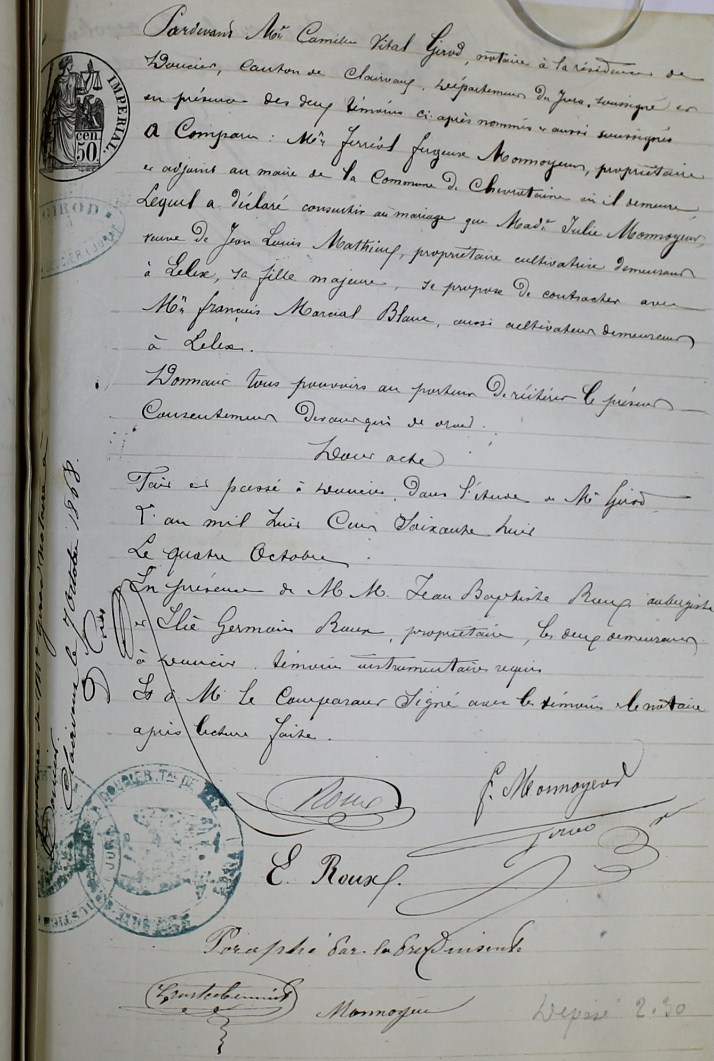 Pardevant Me Camille Vital Girod, notaire à la résidence de
Doucier, canton de Clairvaux, Département du Jura, soussigné et
en présence des deux témoins ci-après nommés & aussi soussignés
A Comparu : Mr Ferréol fergeux Monnoyeur, propriétaire
et adjoint au maire de la Commune de Chevrotaine où il demeure
Lequel a déclaré consentir au mariage que Made Julie Monnoyeur,
veuve de Jean Louis Mathieu, propriétaire cultivatrice demeurant
à Lelex, sa fille majeure, se propose de contracter avec
Mr françois Marcial Blanc, aussi cultivateur demeurant
à Lelex.
Donnant tous pouvoirs au porteur de réitérer le présent
Consentement devant qui de droit.
Dont acte
Fait et passé à Doucier, Dans l'étude de Me Girod
L'an mil huit Cent Soixante huit
Le quatre Octobre.
En présence de M M. Jean Baptiste Roux, aubergiste
et Elie Germain Roux, propriétaire, les deux demeurant
à Doucier, témoins instrumentaires requis
Et a Mr le Comparant Signé avec les témoins & le notaire
après lecture faite.
Roux
f. Monnoyeur
Girod
E. Roux
Paraphé par
Monnoyeur
Déposé 2.30
IMPERIAL
50 cen.
GIROD
Clairvaux le 7 Octobre 1868.
DOUCIER
JURA